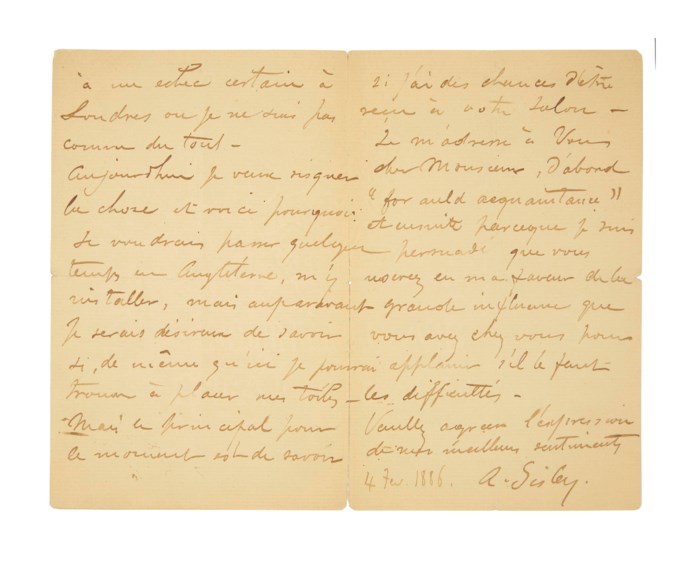 à un echec certain à
Londres ou je ne suis pas
connu du tout -
Aujourd'hui je veux risquer
la chose et voici pourquoi:
Je voudrais passer quelque
temps en Angleterre, m'y
installer, mais auparavant
je serais désireux de savoir
si, de même qu'ici je pourrai
trouver à placer mes toiles -
Mais le principal pour
le moment est de savoir
si j'ai des chances d'être
reçu à votre Salon -
Je m'adresse à Vous
cher Monsieur, d'abord
"for auld acquaintance"
et ensuite parceque je suis
persuadé que vous
userez en ma faveur de la
grande influence que
vous avez chez vous pour
applanir s'il le faut
les difficultés -
Veuillez agréer l'expression
de mes meilleurs sentiments
4 Fev. 1886. A. Sisley.